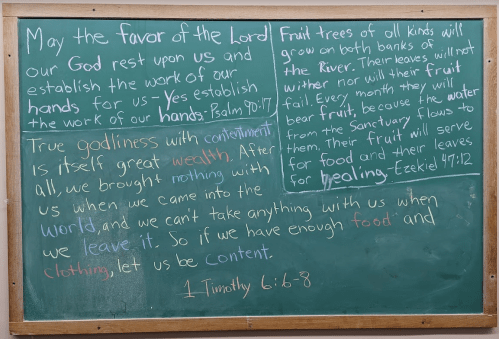 May the favor of the Lord
our God rest upon us and
establish the work of our
hands for us - Yes establish
the work of our hands - Psalm 90:17
Fruit trees of all kinds will
grow on both banks of
the River. Their leaves will not
wither nor will their fruit
fail. Every month they will
bear fruit, because the water
from the Sanctuary flows to
them. Their fruit will serve
for food and their leaves
for healing - Ezekiel 47:12
True godliness with contentment
is itself great wealth. After
all, we brought nothing with
us when we came into the
world, and we can't take anything with us when
we leave it. So if we have enough food and
clothing, let us be content.
1 Timothy 6:6-8